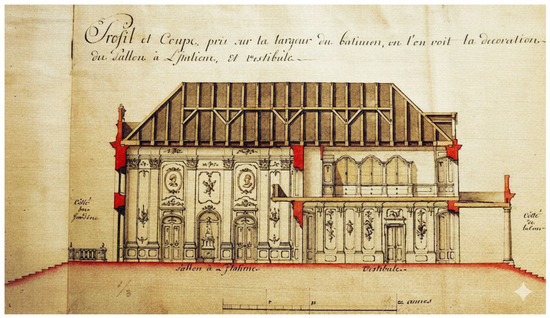 Profil et Coupe, pris sur la largeur du batimen, ou l'on voit la decoration
du Sallon à L'Italiene, Et Vestibule
Côté
des
Jardins
Côté
de
la Cour
Sallon à L'Italiene
Vestibule